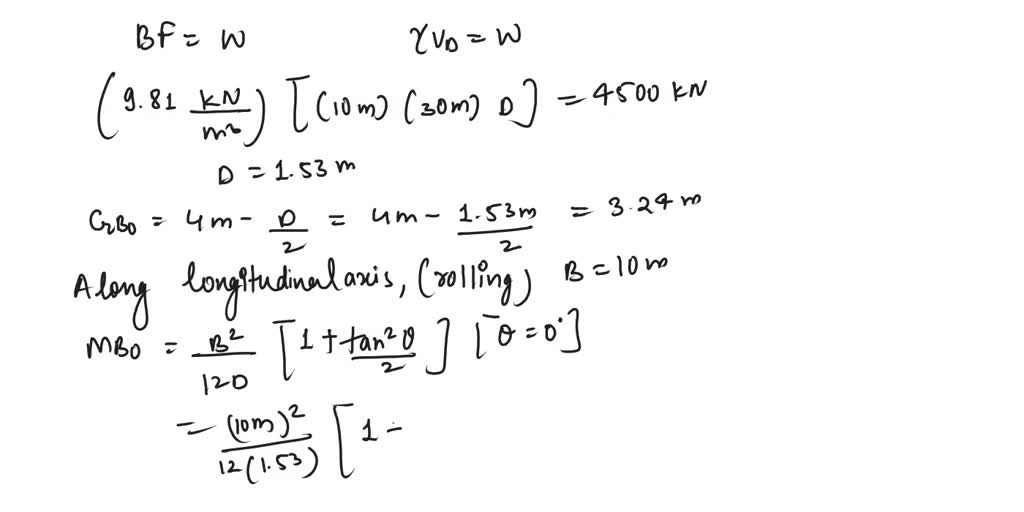 BF = W γV_D = W
(9.81 kN/m³) [(10m) (30m) D] = 4500 kN
D = 1.53 m
GB0 = 4m - D/2 = 4m - 1.53m/2 = 3.24 m
Along longitudinal axis, (rolling) B = 10 m
MB0 = B²/12D [1 + tan²θ/2] [θ = 0°]
= (10m)²/12(1.53) [1 -